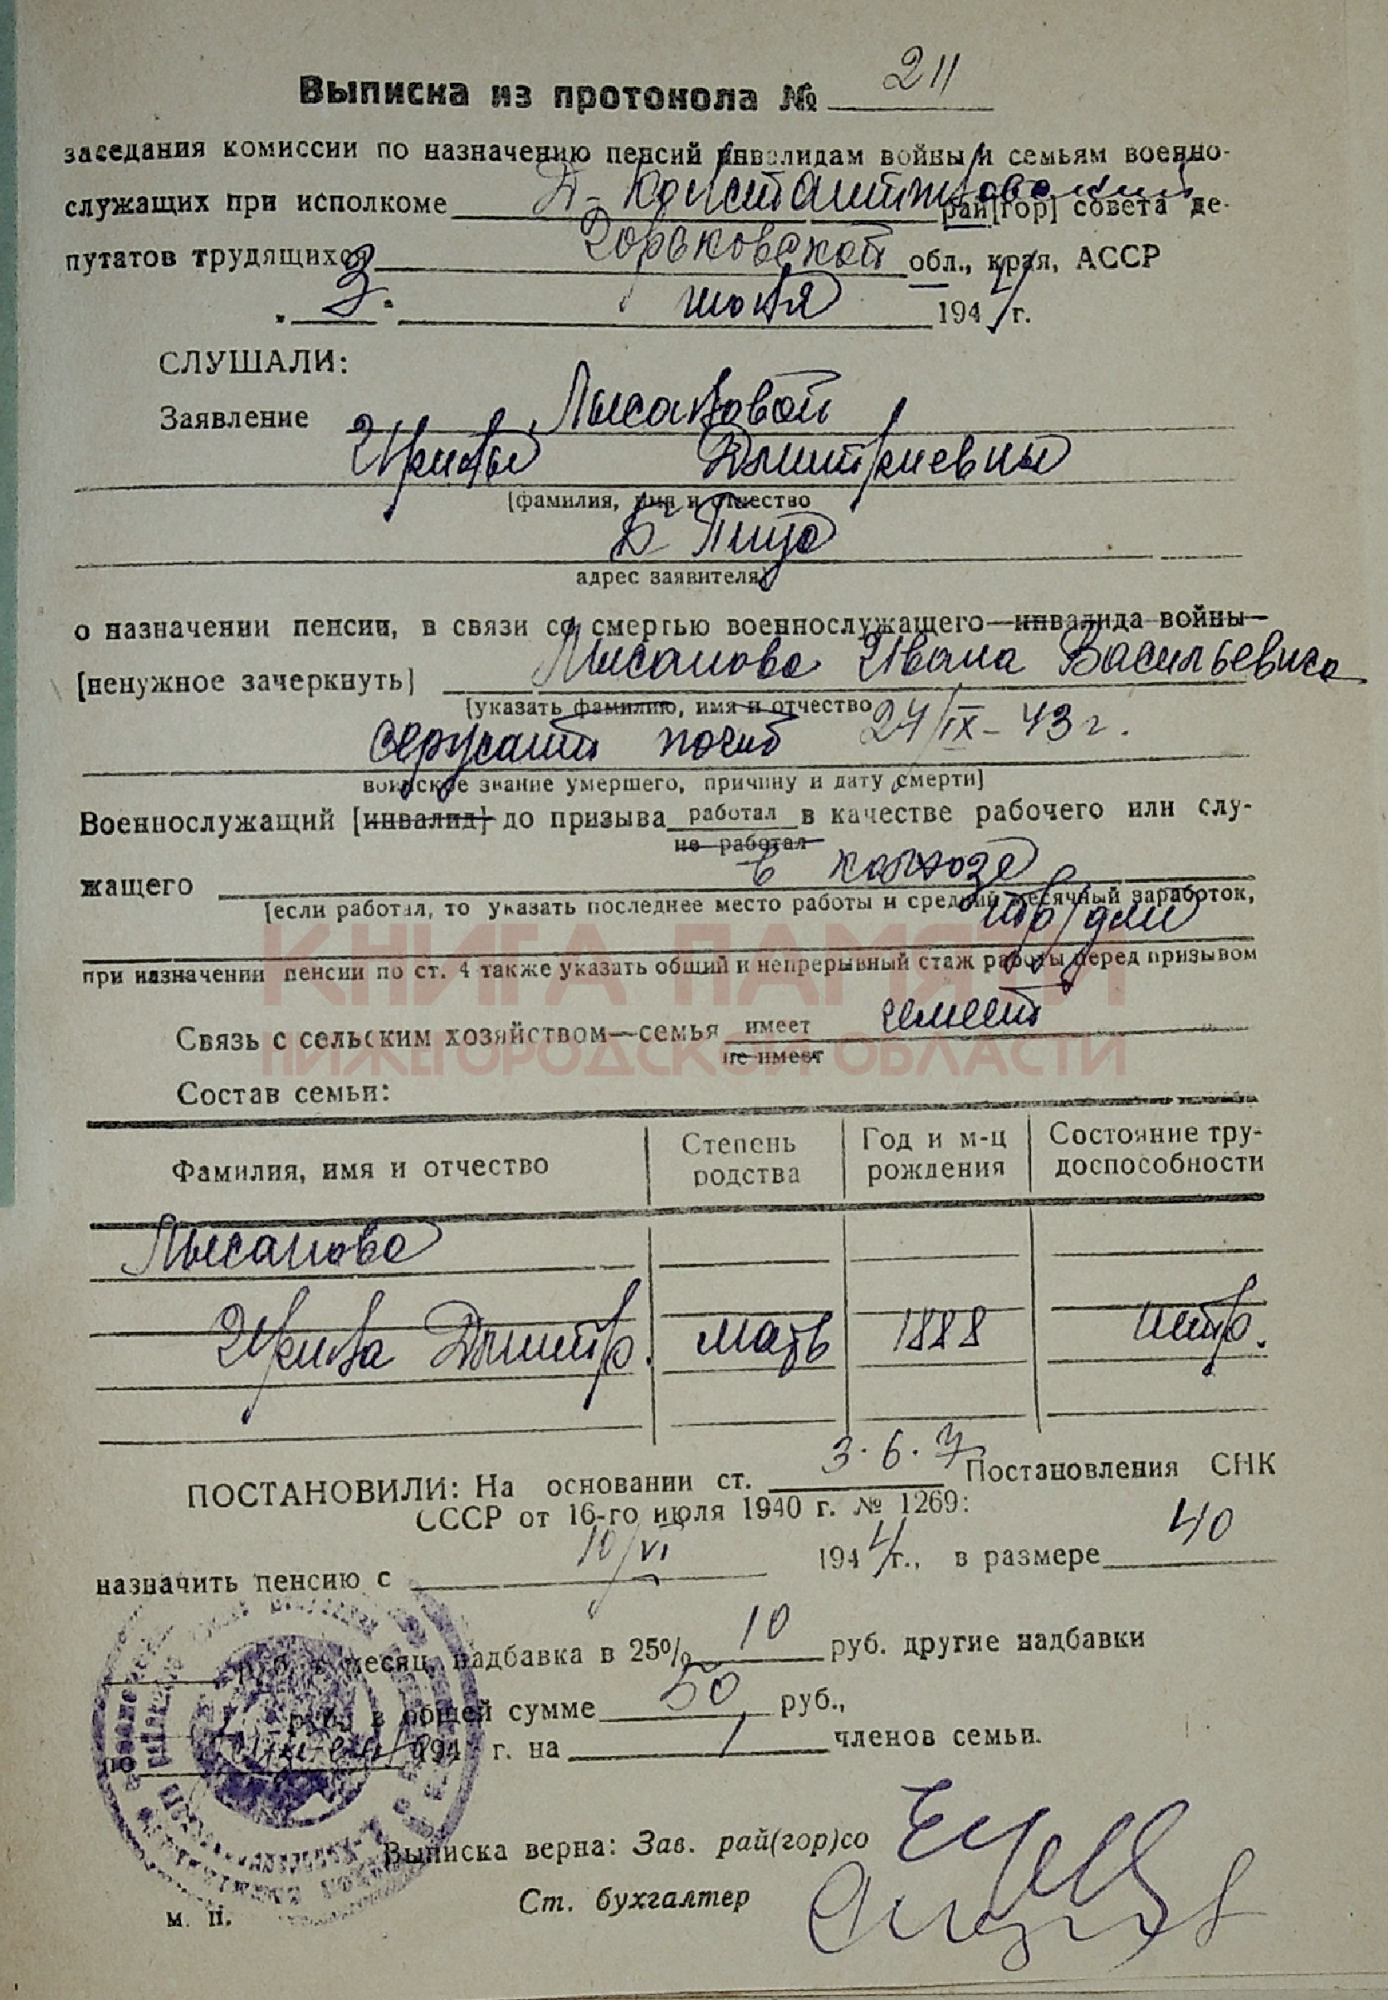 Выписка из протокола № 211
заседания комиссии по назначению пенсий инвалидам войны и семьям военно-
служащих при исполкоме Д-Константиновский рай[гор] совета де-
путатов трудящихся Горьковской обл., края, АССР
„3" июня 1944 г.
СЛУШАЛИ:
Заявление Лысановой
Ирины Дмитриевны
[фамилия, имя и отчество
Б Пица
адрес заявителя]
о назначении пенсии, в связи со смертью военнослужащего—инвалида войны—
[ненужное зачеркнуть] Лысанова Ивана Васильевича
[указать фамилию, имя и отчество
сержант погиб 24/IX-43 г.
воинское звание умершего, причину и дату смерти]
Военнослужащий [инвалид] до призыва работал в качестве рабочего или слу-
не работал
жащего в колхозе
[если работал, то указать последнее место работы и средний месячный заработок,
тр/дни
при назначении пенсии по ст. 4 также указать общий и непрерывный стаж работы перед призывом
КНИГА ПАМЯТИ
НИЖЕГОРОДСКОЙ ОБЛАСТИ
Связь с сельским хозяйством—семья имеет имеет
не имеет
Состав семьи:
Фамилия, имя и отчество Степень родства Год и м-ц рождения Состояние тру-доспособности
Лысанова
Ирина Дмитр. мать 1888 нетр.
ПОСТАНОВИЛИ: На основании ст. 3.6.7 Постановления СНК
СССР от 16-го июля 1940 г. № 1269:
назначить пенсию с 10/VI 1944 г., в размере 40
руб. в месяц, надбавка в 25% 10 руб. другие надбавки
руб. в общей сумме 50 руб.,
по 194 г. на 1 членов семьи.
Выписка верна: Зав. рай(гор)со
Ст. бухгалтер
м. п.